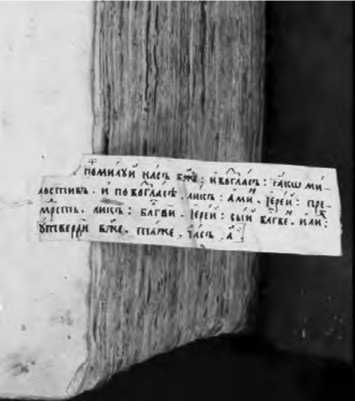 помилуй насъ бж҃е: и҆ возгла́съ: ꙗ҆́кѡ ми́-
лостивъ. и҆ по возгла́сѣ, ликъ: а҆ми́. і҆ере́й: пре-
мⷣрость. ликъ: бл҃гви́. і҆ере́й: сы́й бл҃гве́н. и҆ли́:
ᲂу҆твердѝ бж҃е. та́же, ча́съ, а҃: